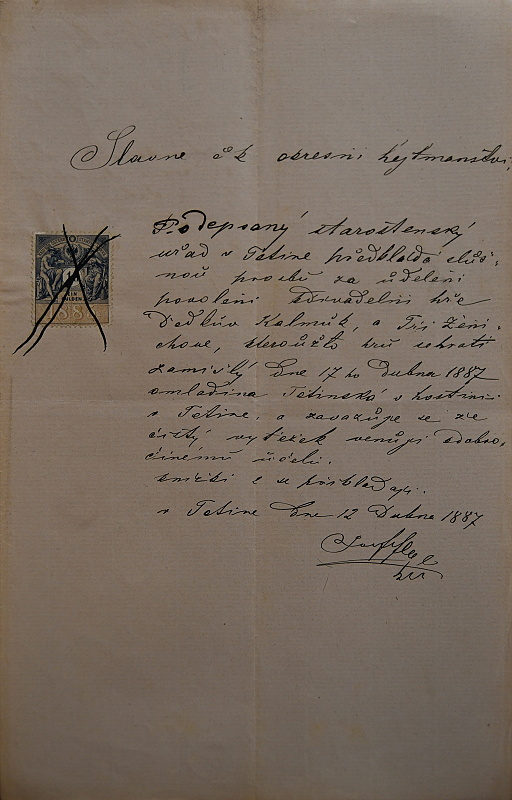 Slavné c k okresní hejtmanství,
Podepsaný starostenský
úřad v Tetíně předkládá sluš-
nou prosbu za udělení
povolení divadelní hře
Dědkův Kalmúk, a Tři Ženi-
chové, kteroužto hru sehráti
zamýšlý Dne 17 ho Dubna 1887
omladina Tetínská v hostinci
v Tetíně. a zavazuje se že
čistý výtěžek venuji dobro-
činému účeli.
se přikládají.
v Tetíně Dne 12 Dubna 1887
1
188